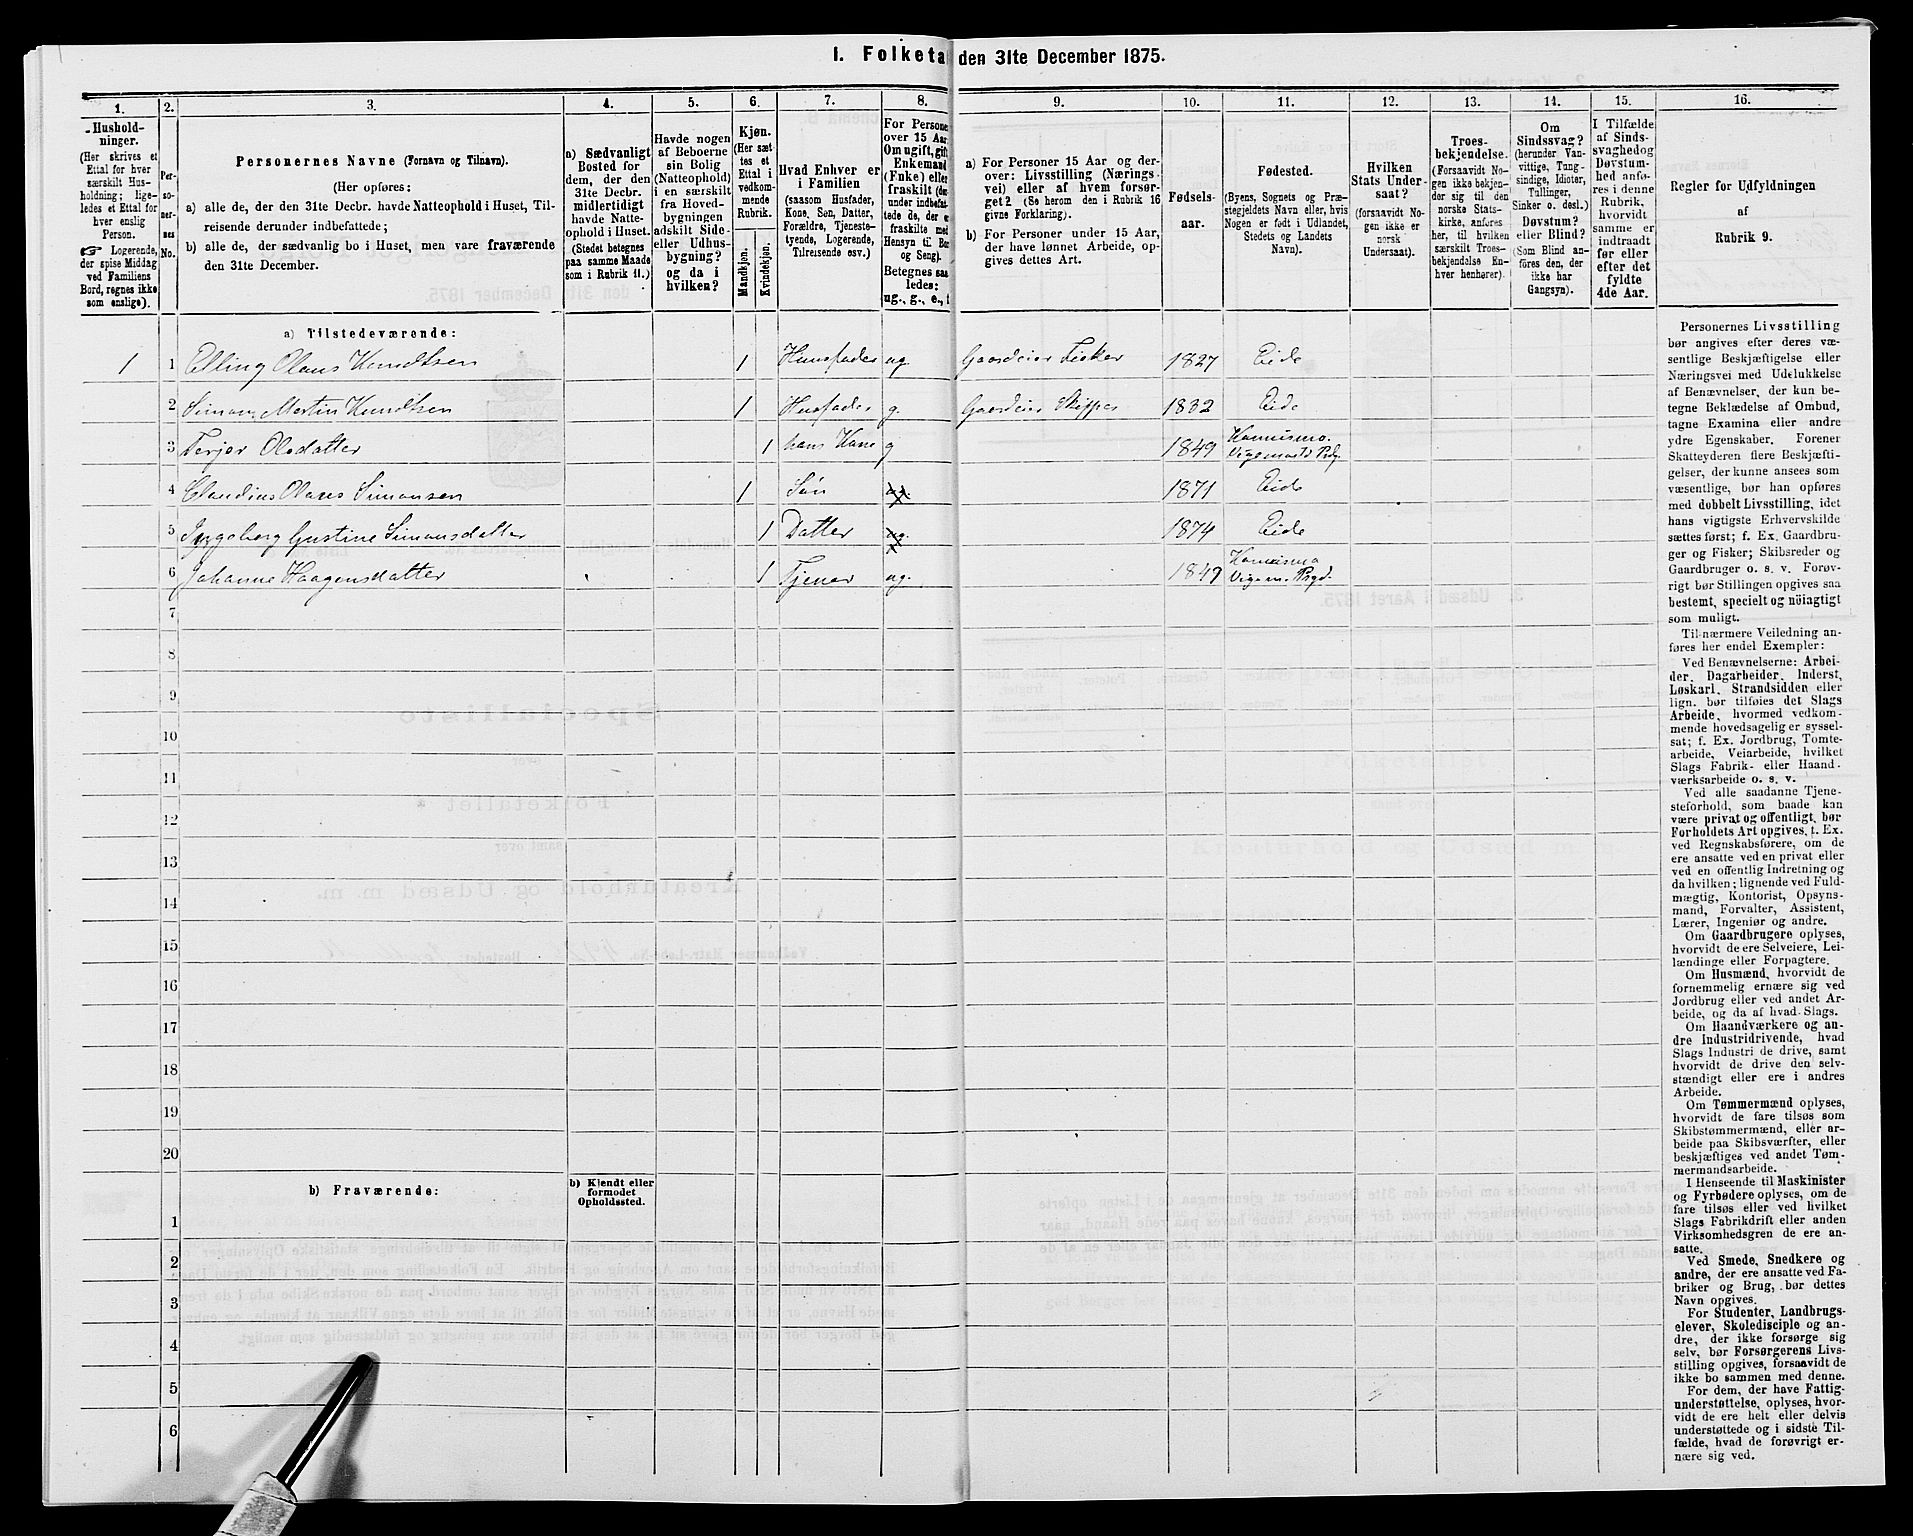 1. Folketa den 31te December 1875.
1.
2.
3.
4.
5.
6.
7.
8.
9.
10.
11.
12.
13.
14.
15.
16.
Hushold-
ninger.
(Her skrives et
Ettal for hver
særskilt Hus-
holdning; lige-
ledes et Ettal for
hver enslig
Person.
☞ Logerende,
der spise Middag
ved Familiens
Bord, regnes ikke
som enslige).
Per-
so-
ner-
nes
No.
Personernes Navne (Fornavn og Tilnavn).
(Her opføres:
a) alle de, der den 31te Decbr. havde Natteophold i Huset, Til-
reisende derunder indbefattede;
b) alle de, der sædvanlig bo i Huset, men vare fraværende
den 31te December.
a) Sædvanligt
Bosted for
dem, der den
31te Decbr.
midlertidigt
havde Natte-
ophold i Huset.
(Stedet betegnes
paa samme Maade
som i Rubrik 11.)
Havde nogen
af Beboerne
sin Bolig
(Natteophold)
i en særskilt
fra Hoved-
bygningen
adskilt Side-
eller Udhus-
bygning?
og da i
hvilken?
Kjøn.
(Her sæt-
tes et
Ettal i
vedkom-
mende
Rubrik.
Mandkjøn.
Kvindekjøn.
Hvad Enhver er
i Familien
(saasom Husfader,
Kone, Søn, Datter,
Forældre, Tjeneste-
tyende, Logerende,
Tilreisende osv.)
For Persone
over 15 Aar
Om ugift, gift
Enkemand
(Enke) eller
fraskilt (der
under indbefat-
tede de, der er
fraskilte med
Hensyn til Bor
og Seng).
Betegnes saa
ledes:
ug., g., e., f
a) For Personer 15 Aar og der-
over: Livsstilling (Nærings-
vei) eller af hvem forsør-
get? (Se herom den i Rubrik 16
givne Forklaring).
b) For Personer under 15 Aar,
der have lønnet Arbeide, op-
gives dettes Art.
Fødsels-
aar.
Fødested.
(Byens, Sognets og Præ-
stegjeldets Navn eller, hvis
Nogen er født i Udlandet,
Stedets og Landets
Navn).
Hvilken
Stats Under-
saat?
(forsaavidt No-
gen ikke er
norsk
Undersaat).
Troes-
bekjendelse.
(Forsaavidt No-
gen ikke bekjen-
der sig til den
norske Stats-
kirke, anføres
her, til hvilken
særskilt Troes-
bekjendelse En-
hver henhører).
Om
Sindssvag?
(herunder Van-
vittige, Tung-
sindige, Idioter,
Tullinger,
Sinker o. desl.)
Døvstum?
eller Blind?
(Som Blind an-
føres den, der
ikke har
Gangsyn).
I Tilfælde
af Sinds-
svaghedog
Døvstum-
hed anfø-
res i denne
Rubrik,
hvorvidt
samme er
indtraadt
før eller
efter det
fyldte
4de Aar.
Regler for Udfyldningen
af
Rubrik 9.
a) Tilstedeværende:
1 1 Elling Olaus Knudtsen 1 Huusfader ug. Gaardeier Fisker 1827 Eide
2 Simon Martin Knudtsen 1 Husfader g. Gaardeier Skipper 1832 Eide
3 Terjer Olsdatter 1 hans Kone g 1849 Hannismo. Vigemosts Pdg.
4 Claudius Olaus Simonsen 1 Søn ug. 1871 Eide
5 Ingeborg Gustine Simonsdatter 1 Datter ug. 1874 Eide
6 Johanne Haagensdatter 1 Tjener ug. 1849 Hannismo Vigem. Prgd.
7
8
9
10
11
12
13
14
15
16
17
18
19
20
b) Fraværende:
b) Kjendt eller
formodet
Opholdssted.
1
2
3
4
5
6
Personernes Livsstilling
bør angives efter deres væ-
sentlige Beskjæftigelse eller
Næringsvei med Udelukkelse
af Benævnelser, der kun be-
tegne Beklædelse af Ombud,
tagne Examina eller andre
ydre Egenskaber. Forener
Skatteyderen flere Beskjæfti-
gelser, der kunne ansees som
væsentlige, bør han opføres
med dobbelt Livsstilling, idet
hans vigtigste Erhvervskilde
sættes først; f. Ex. Gaardbru-
ger og Fisker; Skibsreder og
Gaardbruger o. s. v. Forøv-
rigt bør Stillingen opgives saa
bestemt, specielt og nöiagtigt
som muligt.
Til nærmere Veiledning an-
føres her endel Exempler:
Ved Benævnelserne: Arbei-
der, Dagarbeider, Inderst,
Løskarl, Strandsidden eller
lign. bør tilføies det Slags
Arbeide, hvormed vedkom-
mende hovedsagelig er syssel-
sat; f. Ex. Jordbrug, Tomte-
arbeide, Veiarbeide, hvilket
Slags Fabrik- eller Haand-
værksarbeide o. s. v.
Ved alle saadanne Tjene-
steforhold, som baade kan
være privat og offentligt, bør
Forholdets Art opgives, f. Ex.
ved Regnskabsførere, om de
ere ansatte ved en privat eller
ved en offentlig Indretning og
da hvilken; lignende ved Fuld-
mægtig, Kontorist, Opsyns-
mand, Forvalter, Assistent,
Lærer, Ingeniør og andre.
Om Gaardbrugere oplyses,
hvorvidt de ere Selveiere, Lei-
lændinge eller Forpagtere.
Om Husmænd, hvorvidt de
fornemmelig ernære sig ved
Jordbrug eller ved andet Ar-
beide, og da af hvad Slags.
Om Haandværkere og an-
dre Industridrivende, hvad
Slags Industri de drive, samt
hvorvidt de drive den selv-
stændigt eller ere i andres
Arbeide.
Om Tømmermænd oplyses,
hvorvidt de fare tilsøs som
Skibstømmermænd, eller ar-
beide paa Skibsværfter, eller
beskjæftiges ved andet Tøm-
mermandsarbeide.
I Henseende til Maskinister
og Fyrbødere oplyses, om de
fare tilsøs eller ved hvilket
Slags Fabrikdrift eller anden
Virksomhedsgren de ere an-
satte.
Ved Smede, Snedkere og
andre, der ere ansatte ved Fa-
briker og Brug, bør dettes
Navn opgives.
For Studenter, Landbrugs-
elever, Skoledisciple og an-
dre, der ikke forsørge sig
selv, bør Forsørgerens Livs-
stilling opgives, forsaavidt de
ikke bo sammen med denne.
For dem, der have Fattig-
understøttelse, oplyses, hvor-
vidt de ere helt eller delvis
understøttede og i sidste Til-
fælde, hvad de forøvrigt er-
nære sig ved.